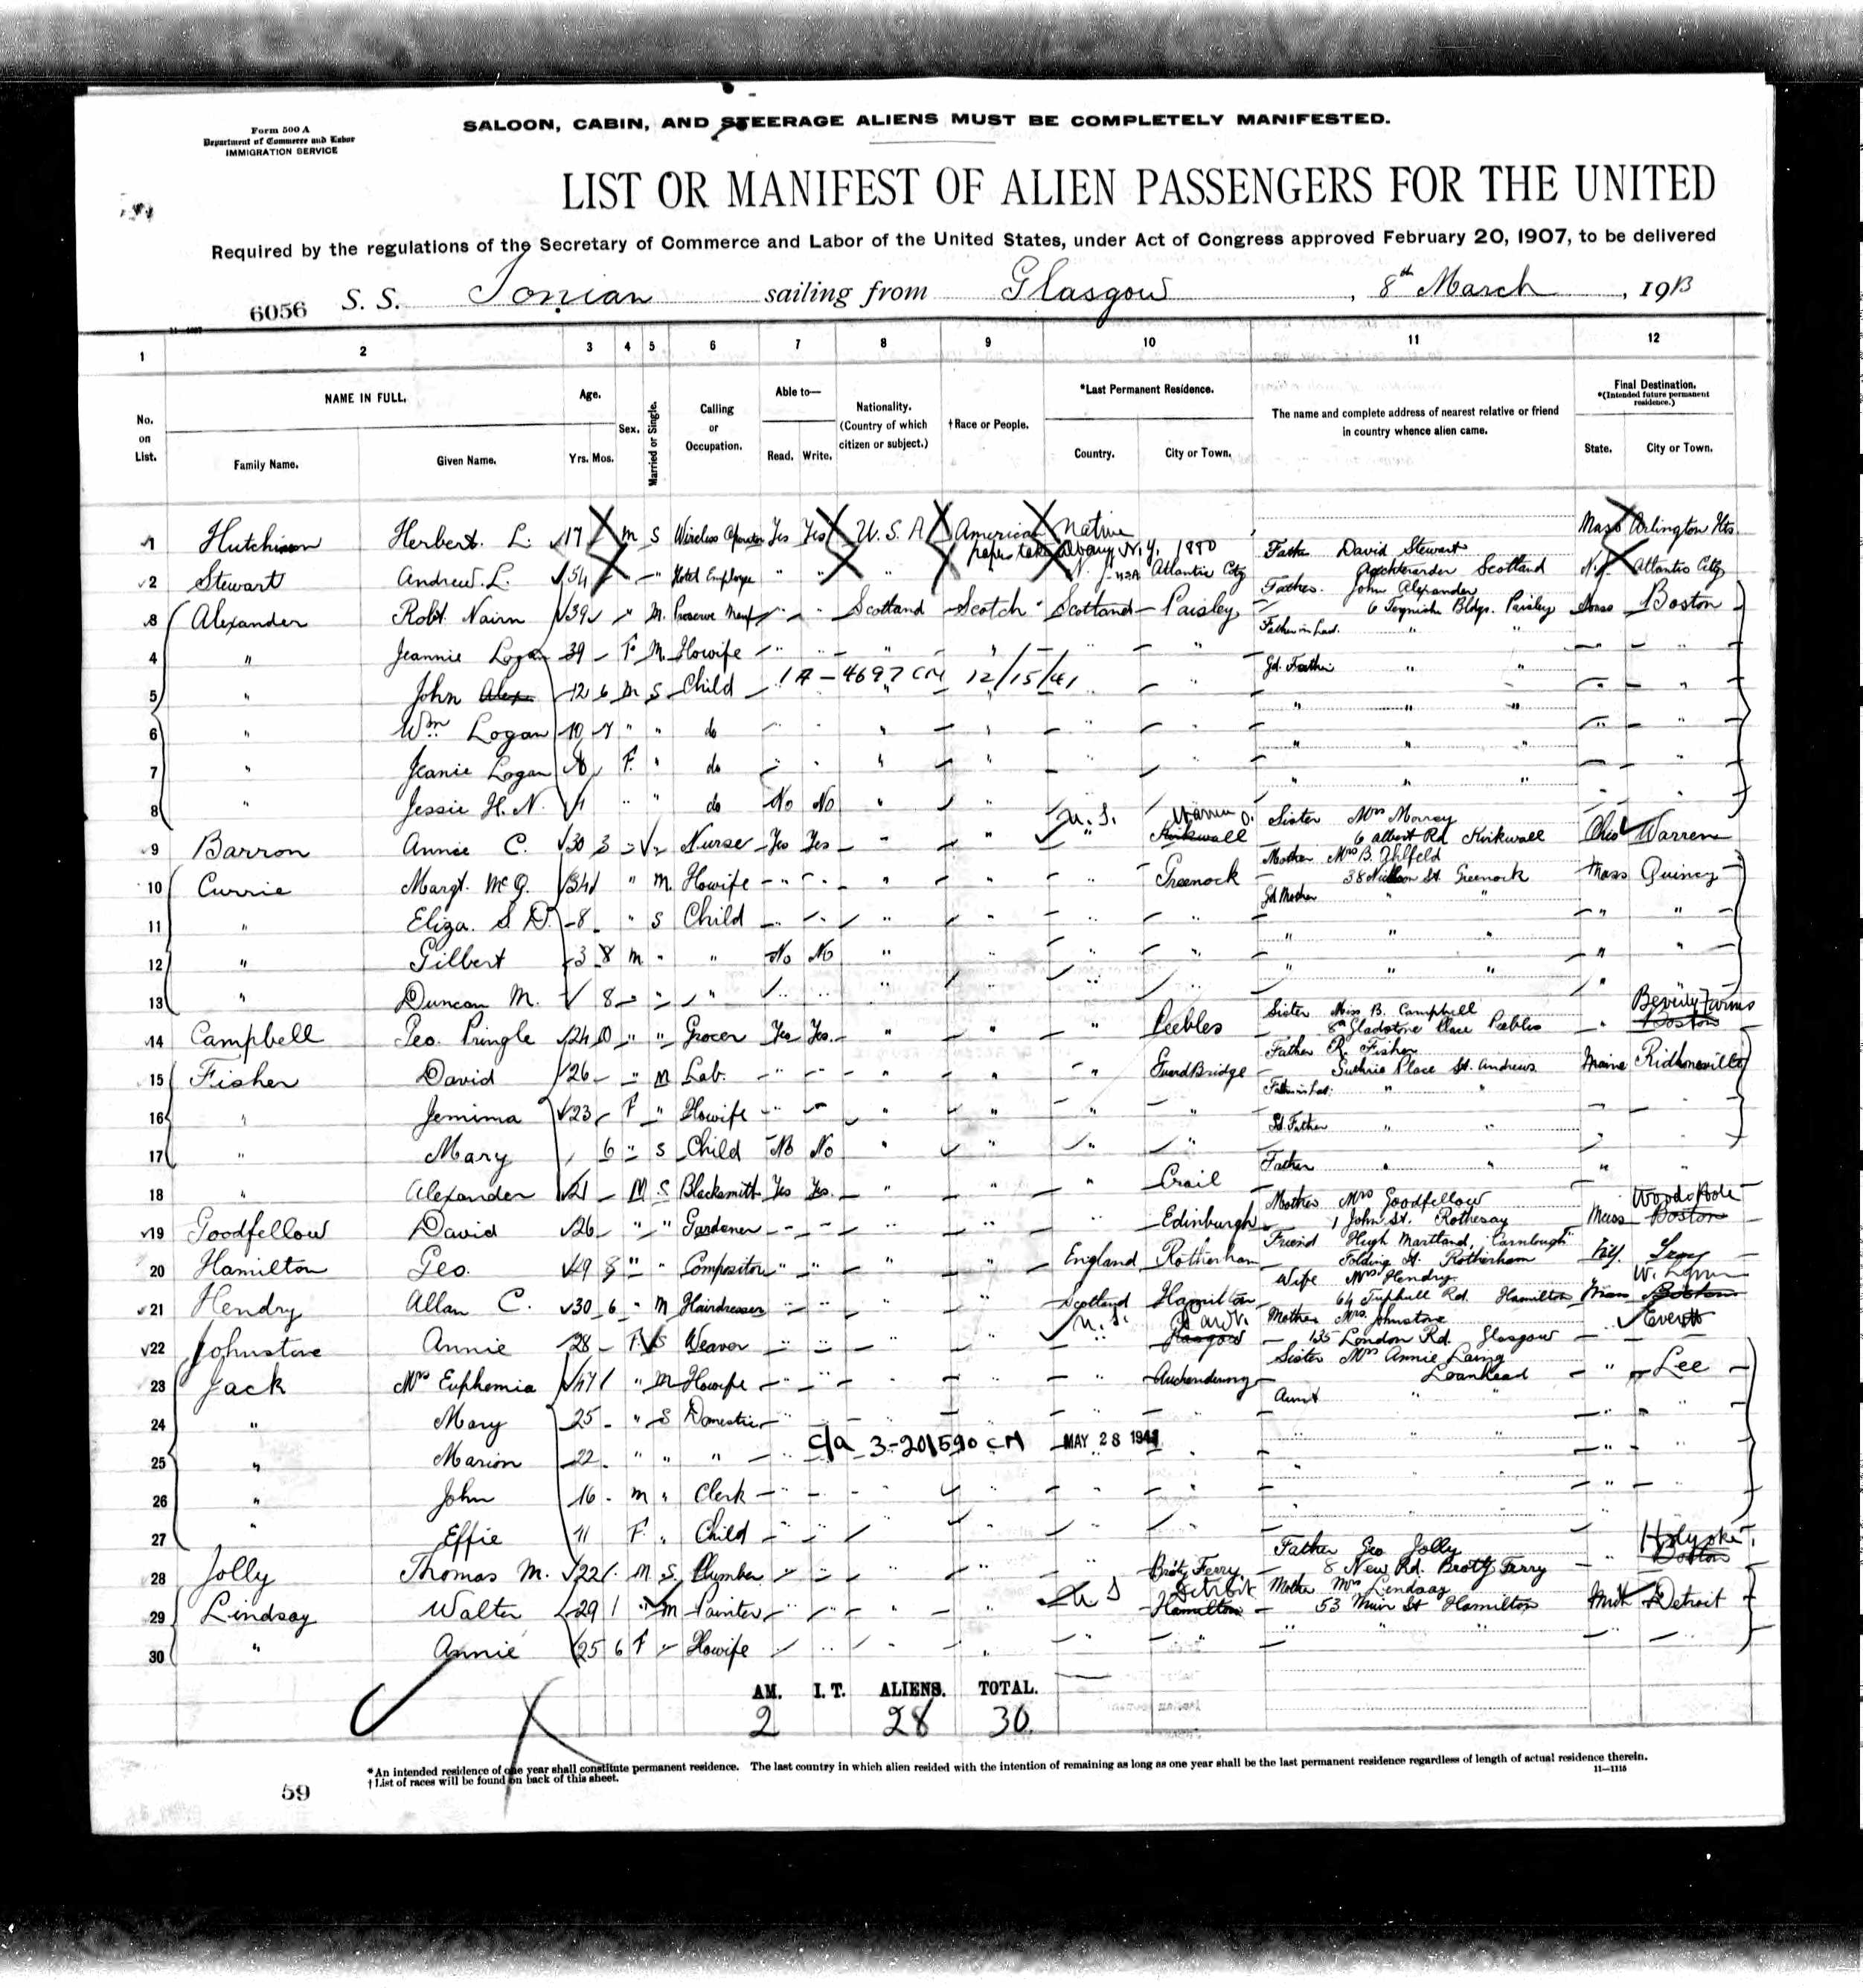 Form 500 A
Department of Commerce and Labor
IMMIGRATION SERVICE
SALOON, CABIN, AND STEERAGE ALIENS MUST BE COMPLETELY MANIFESTED.
LIST OR MANIFEST OF ALIEN PASSENGERS FOR THE UNITED
Required by the regulations of the Secretary of Commerce and Labor of the United States, under Act of Congress approved February 20, 1907, to be delivered
6056 S. S. Ionian sailing from Glasgow, 8th March, 1913
1 2 3 4 5 6 7 8 9 10 11 12
No. on List. NAME IN FULL. Family Name. Given Name. Age. Yrs. Mos. Sex. Married or Single. Calling or Occupation. Able to— Read. Write. Nationality. (Country of which citizen or subject.) †Race or People. *Last Permanent Residence. Country. City or Town. The name and complete address of nearest relative or friend in country whence alien came. Final Destination. *(Intended future permanent residence.) State. City or Town.
1 Hutchison Herbert. L. 17 m S Wireless Operator Yes Yes U.S.A American Native Mass Arlington Hts.
Albany N.Y. 1880
2 Stewart Andrew. L. 54 " Hotel Employe " " " N.J. USA Atlantic City Father David Stewart Auchterarder Scotland N.J. Atlantic City
3 Alexander Robt. Nairn 39 " M. Preserve Manf " " Scotland Scotch Scotland Paisley Father. John Alexander 6 Bldgs. Paisley Mass Boston
4 " Jeannie Logan 39 F M. Howife " " " " " " Father in Law. " " " "
5 " John Alex 12 6 m S Child 1A-4697 CM 12/15/41 " Gd. Father " " " "
6 " Wm Logan 10 7 " " do " " " " " " "
7 " Jeanie Logan 8 F. " do " " " " " "
8 " Jessie H. N. 1 " " do No No " " " " "
9 Barron Annie C. 30 3 " Nurse Yes Yes " " U.S. Warren O. Kirkwall Sister Mrs Morray 6 Albert Rd Kirkwall Ohio Warren
10 Currie Margt. McG. 34 " M. Howife " " " " " Greenock Mother Mrs B. Ahlfeld 38 St. Greenock Mass Quincy
11 " Eliza. S. D. 8 " S Child " " " " " " Gd Mother " " " "
12 " Gilbert 3 8 m " " No No " " " " " " " " "
13 " Duncan M. 8 " " " " " " " " " " " "
14 Campbell Geo. Pringle 24 10 " " Grocer Yes Yes. " " " Peebles Sister Miss B. Campbell 8a Gladstone Place Peebles " Beverly Farms Boston
15 Fisher David 26 " M Lab. " " " " " Guard Bridge Father R. Fisher Guthrie Place St. Andrews Maine
16 " Jemima 23 F " Howife " " " " " Father in Law. " " "
17 " Mary 6 " S Child No No " " " " Gd. Father " "
18 " Alexander 21 M S Blacksmith Yes Yes. " " " Crail Father " " " "
19 Goodfellow David 26 " " Gardener " " " " " Edinburgh Mother Mrs Goodfellow 1 John St. Rothesay Mass Woods Hole Boston
20 Hamilton Geo. 49 8 " " Compositor " " " " England Rotherham Friend Hugh Martland, "Carnlough" St. Rotherham
21 Hendry Allan C. 30 6 " M Hairdresser " " " " Scotland Hamilton Wife Mrs Hendry 64 Rd. Hamilton Mass W. Lynn Boston
22 Johnstone Annie 28 F. S Weaver " " " " U.S. Glasgow Mother Mrs. Johnstone 135 London Rd. Glasgow Everett
23 Jack Mrs Euphemia 47 " M Howife " " " " " Auchendinny Sister Mrs Annie Laing Loanhead " Lee
24 " Mary 25 " S Domestic " Aunt " " " "
25 " Marion 22 " " " c/a 3-201590 CM MAY 28 194 " " " " "
26 " John 16 m " Clerk " " " " " " " " "
27 " Effie 11 F. " Child " " " " " "
28 Jolly Thomas M. 22 M S. Plumber " " " " " Broty Ferry Father Geo Jolly 8 New Rd. Broty Ferry " Holyoke Boston
29 Lindsay Walter 29 1 " m Painter " " " " U S Detroit Hamilton Mother Mrs Lindsay 53 Muir St Hamilton Mich Detroit
30 " Annie 25 6 F " Howife " " " " " " " " "
AM. I. T. ALIENS. TOTAL.
2 28 30
*An intended residence of one year shall constitute permanent residence. The last country in which alien resided with the intention of remaining as long as one year shall be the last permanent residence regardless of length of actual residence therein.
†List of races will be found on back of this sheet.
11—1115
59